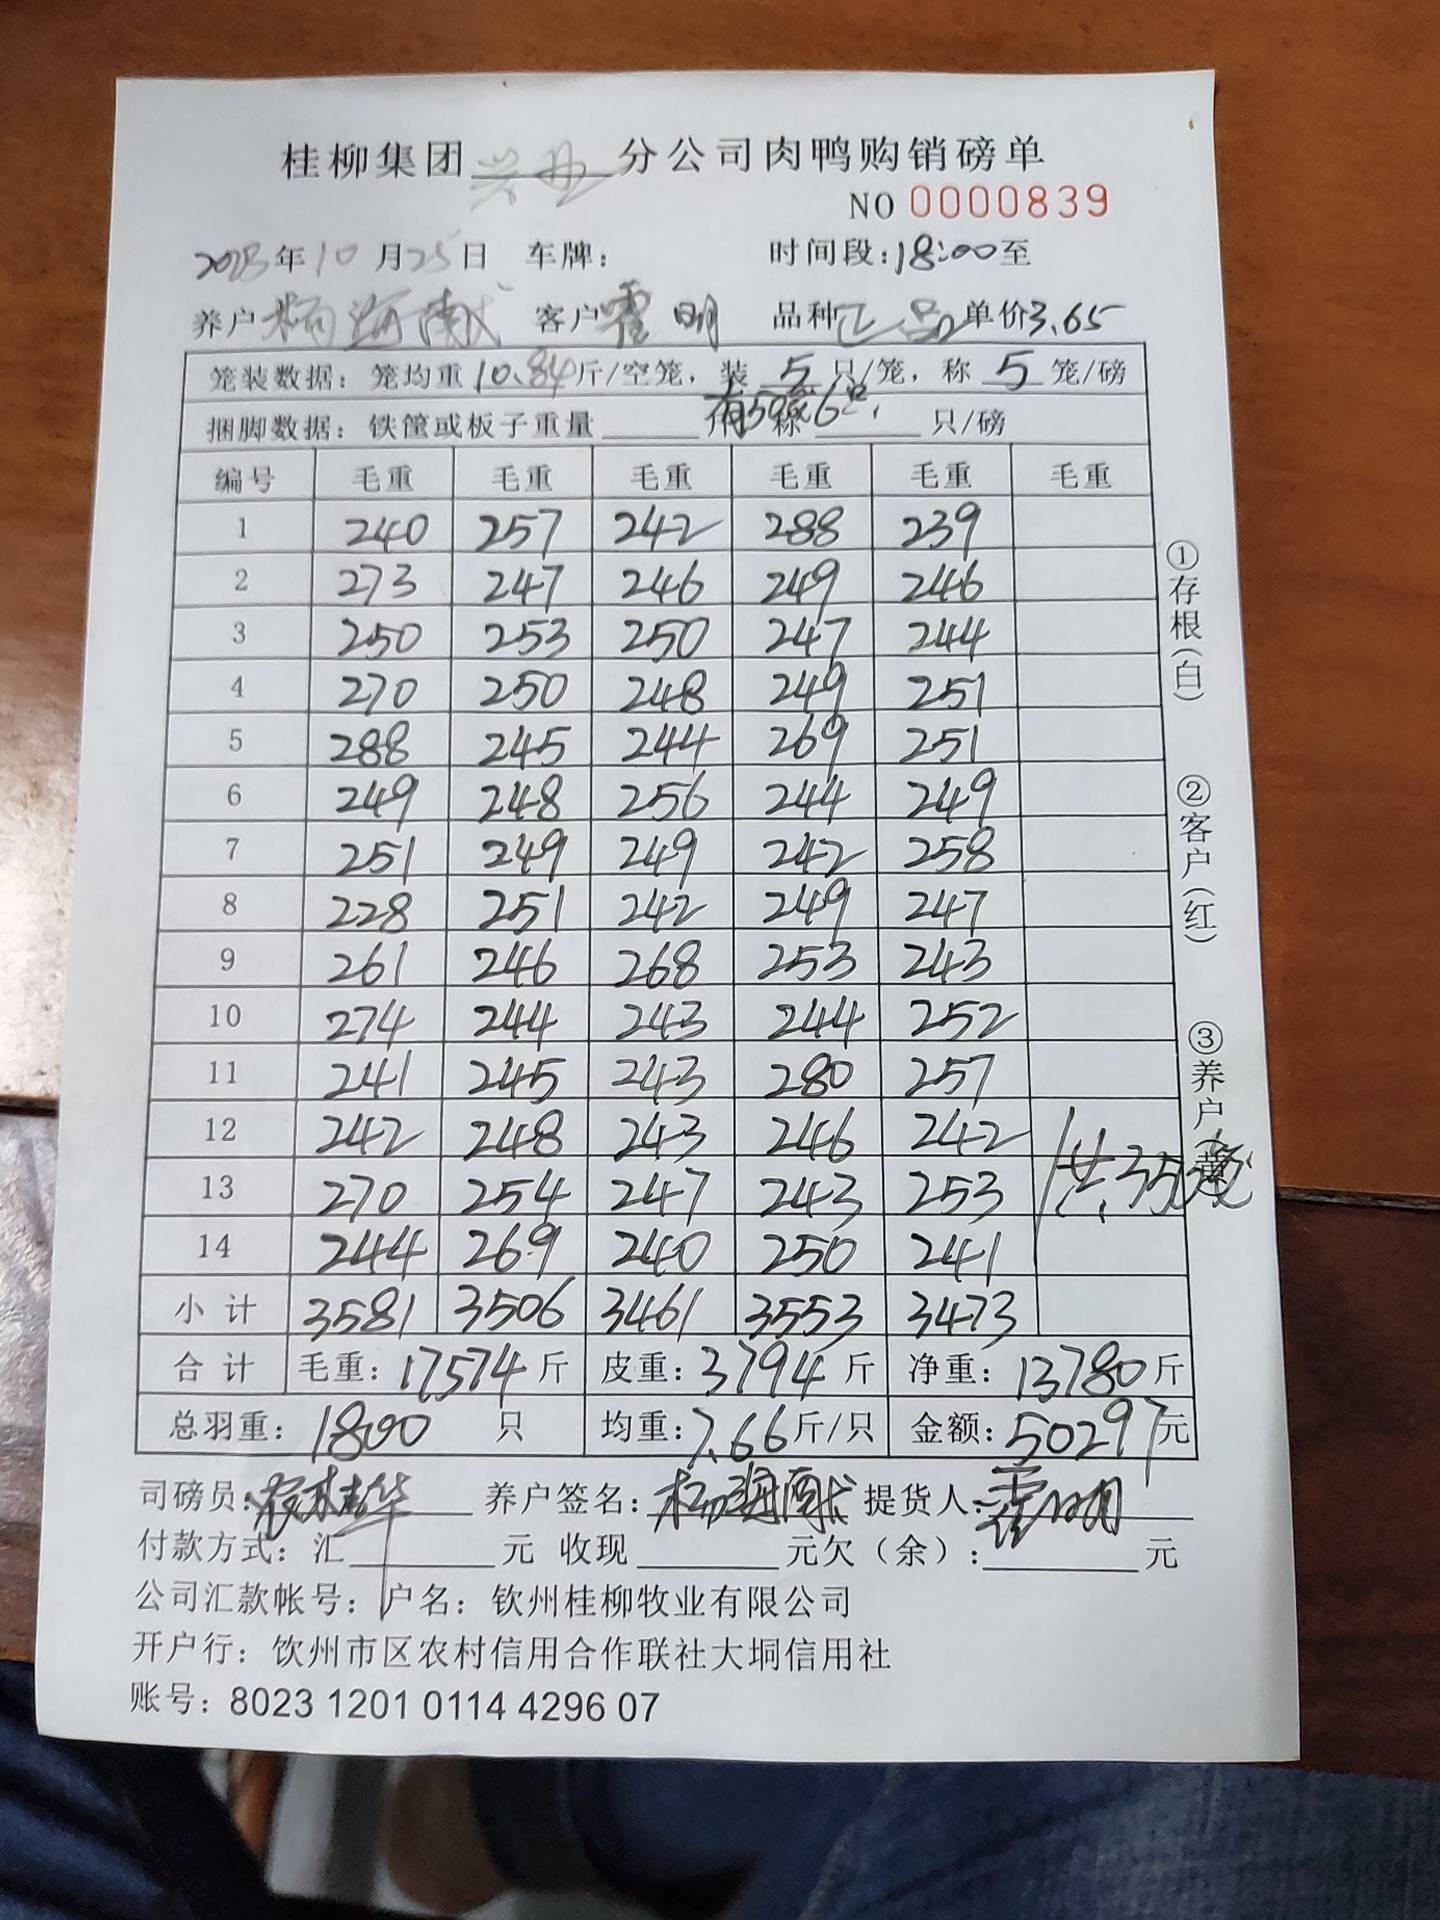 桂柳集团兴业分公司肉鸭购销磅单
NO 0000839
2023年10月25日 车牌： 时间段：18:00至
养户杨海献 客户霍明 品种乙品 单价3.65
笼装数据：笼均重10.84斤/空笼，装5只/笼，称5笼/磅
捆脚数据：铁筐或板子重量 斤 称 只/磅
有50笼6只.
编号 毛重 毛重 毛重 毛重 毛重 毛重
1 240 257 242 288 239
2 273 247 246 249 246
3 250 253 250 247 244
4 270 250 248 249 251
5 288 245 244 269 251
6 249 248 256 244 249
7 251 249 249 242 258
8 228 251 242 249 247
9 261 246 268 253 243
10 274 244 243 244 252
11 241 245 243 280 257
12 242 248 243 246 242
13 270 254 247 243 253 共350笼
14 244 269 240 250 241
小计 3581 3506 3461 3553 3473
合计 毛重：17574斤 皮重：3794斤 净重：13780斤
总羽重：1800 只 均重：7.66斤/只 金额：50297元
司磅员： 养户签名：杨海献 提货人：霍明
付款方式：汇 元 收现 元欠（余）： 元
公司汇款帐号：户名：钦州桂柳牧业有限公司
开户行：饮州市区农村信用合作联社大垌信用社
账号：8023 1201 0114 4296 07
①存根（白） ②客户（红） ③养户（黄）